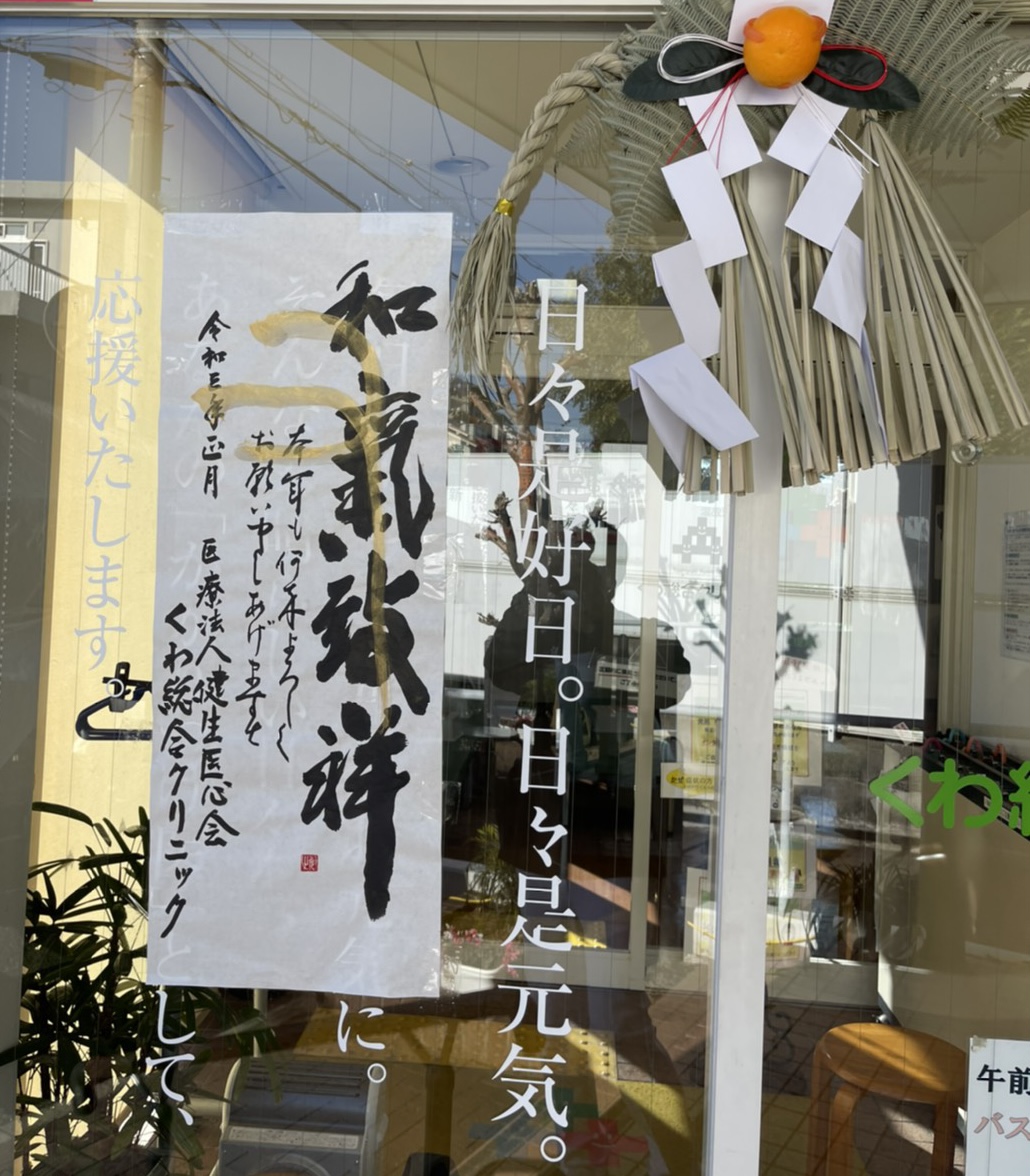 日々是好日。日々是元気。
気に。
として、
応援いたします
和氣致祥
本年も何卒よろしく
お願い申しあげます
令和三年正月
医療法人健生医心会
くわ総合クリニック
くわ
午前
バス